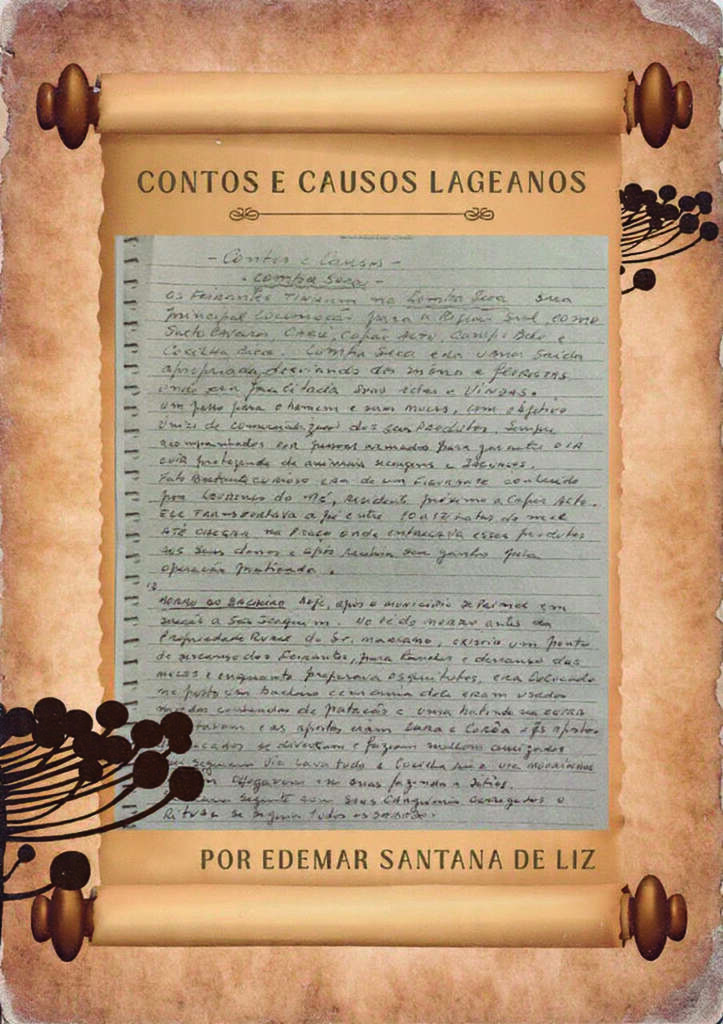 CONTOS E CAUSOS LAGEANOS
- Contos e Causos -
. Lomba Seca
Os Feirantes Tinham na Lomba Seca sua
principal Locomoção para a Região Sul, como
Lavara, Cajú, Capão Alto, Campo Belo e
Coxilha Rica. Lomba Seca era uma Saída
apropriada, desviando dos e FLORESTAS
onde era facilitada suas idas e VINDAS.
um passo para o homem e suas mulas, com objetivo
único de comercializar dos seus PRODUTOS. Sempre
acompanhados por pessoas armadas para garantir O IR
e vir protegendo de animais selvagens e
Fato Bastante curioso era de um conhecido
por LOURENÇO do residente próximo a Capão Alto.
ELE TRANSPORTAVA a pé entre 10 a 12 latas de mel
ATÉ CHEGAR na Praça onde entregava esses produtos
aos seus donos e após receber seu ganho pela
operação praticada.
MORRO DO BACHEIRO Hoje, após o município de Painel em
direção a São Joaquim. No pé do morro antes da
Propriedade Rural do Sr. Mariano, existia um ponto
de descanso dos Feirantes, para e descanso das
mulas e enquanto preparava os quitutes, era colocado
no posto um bacheiro em cima dele eram usadas
moedas de patacão e uma batida na outra
e as apostas eram cara e Corôa
se divertiam e faziam melhores amizades
via Lava tudo e Coxilha Rica
chegavam em suas fazendas e Sítios.
seguinte com seus Cargueiros carregados o
Ritual se seguia todos os SÁBADOS.
POR EDEMAR SANTANA DE LIZ